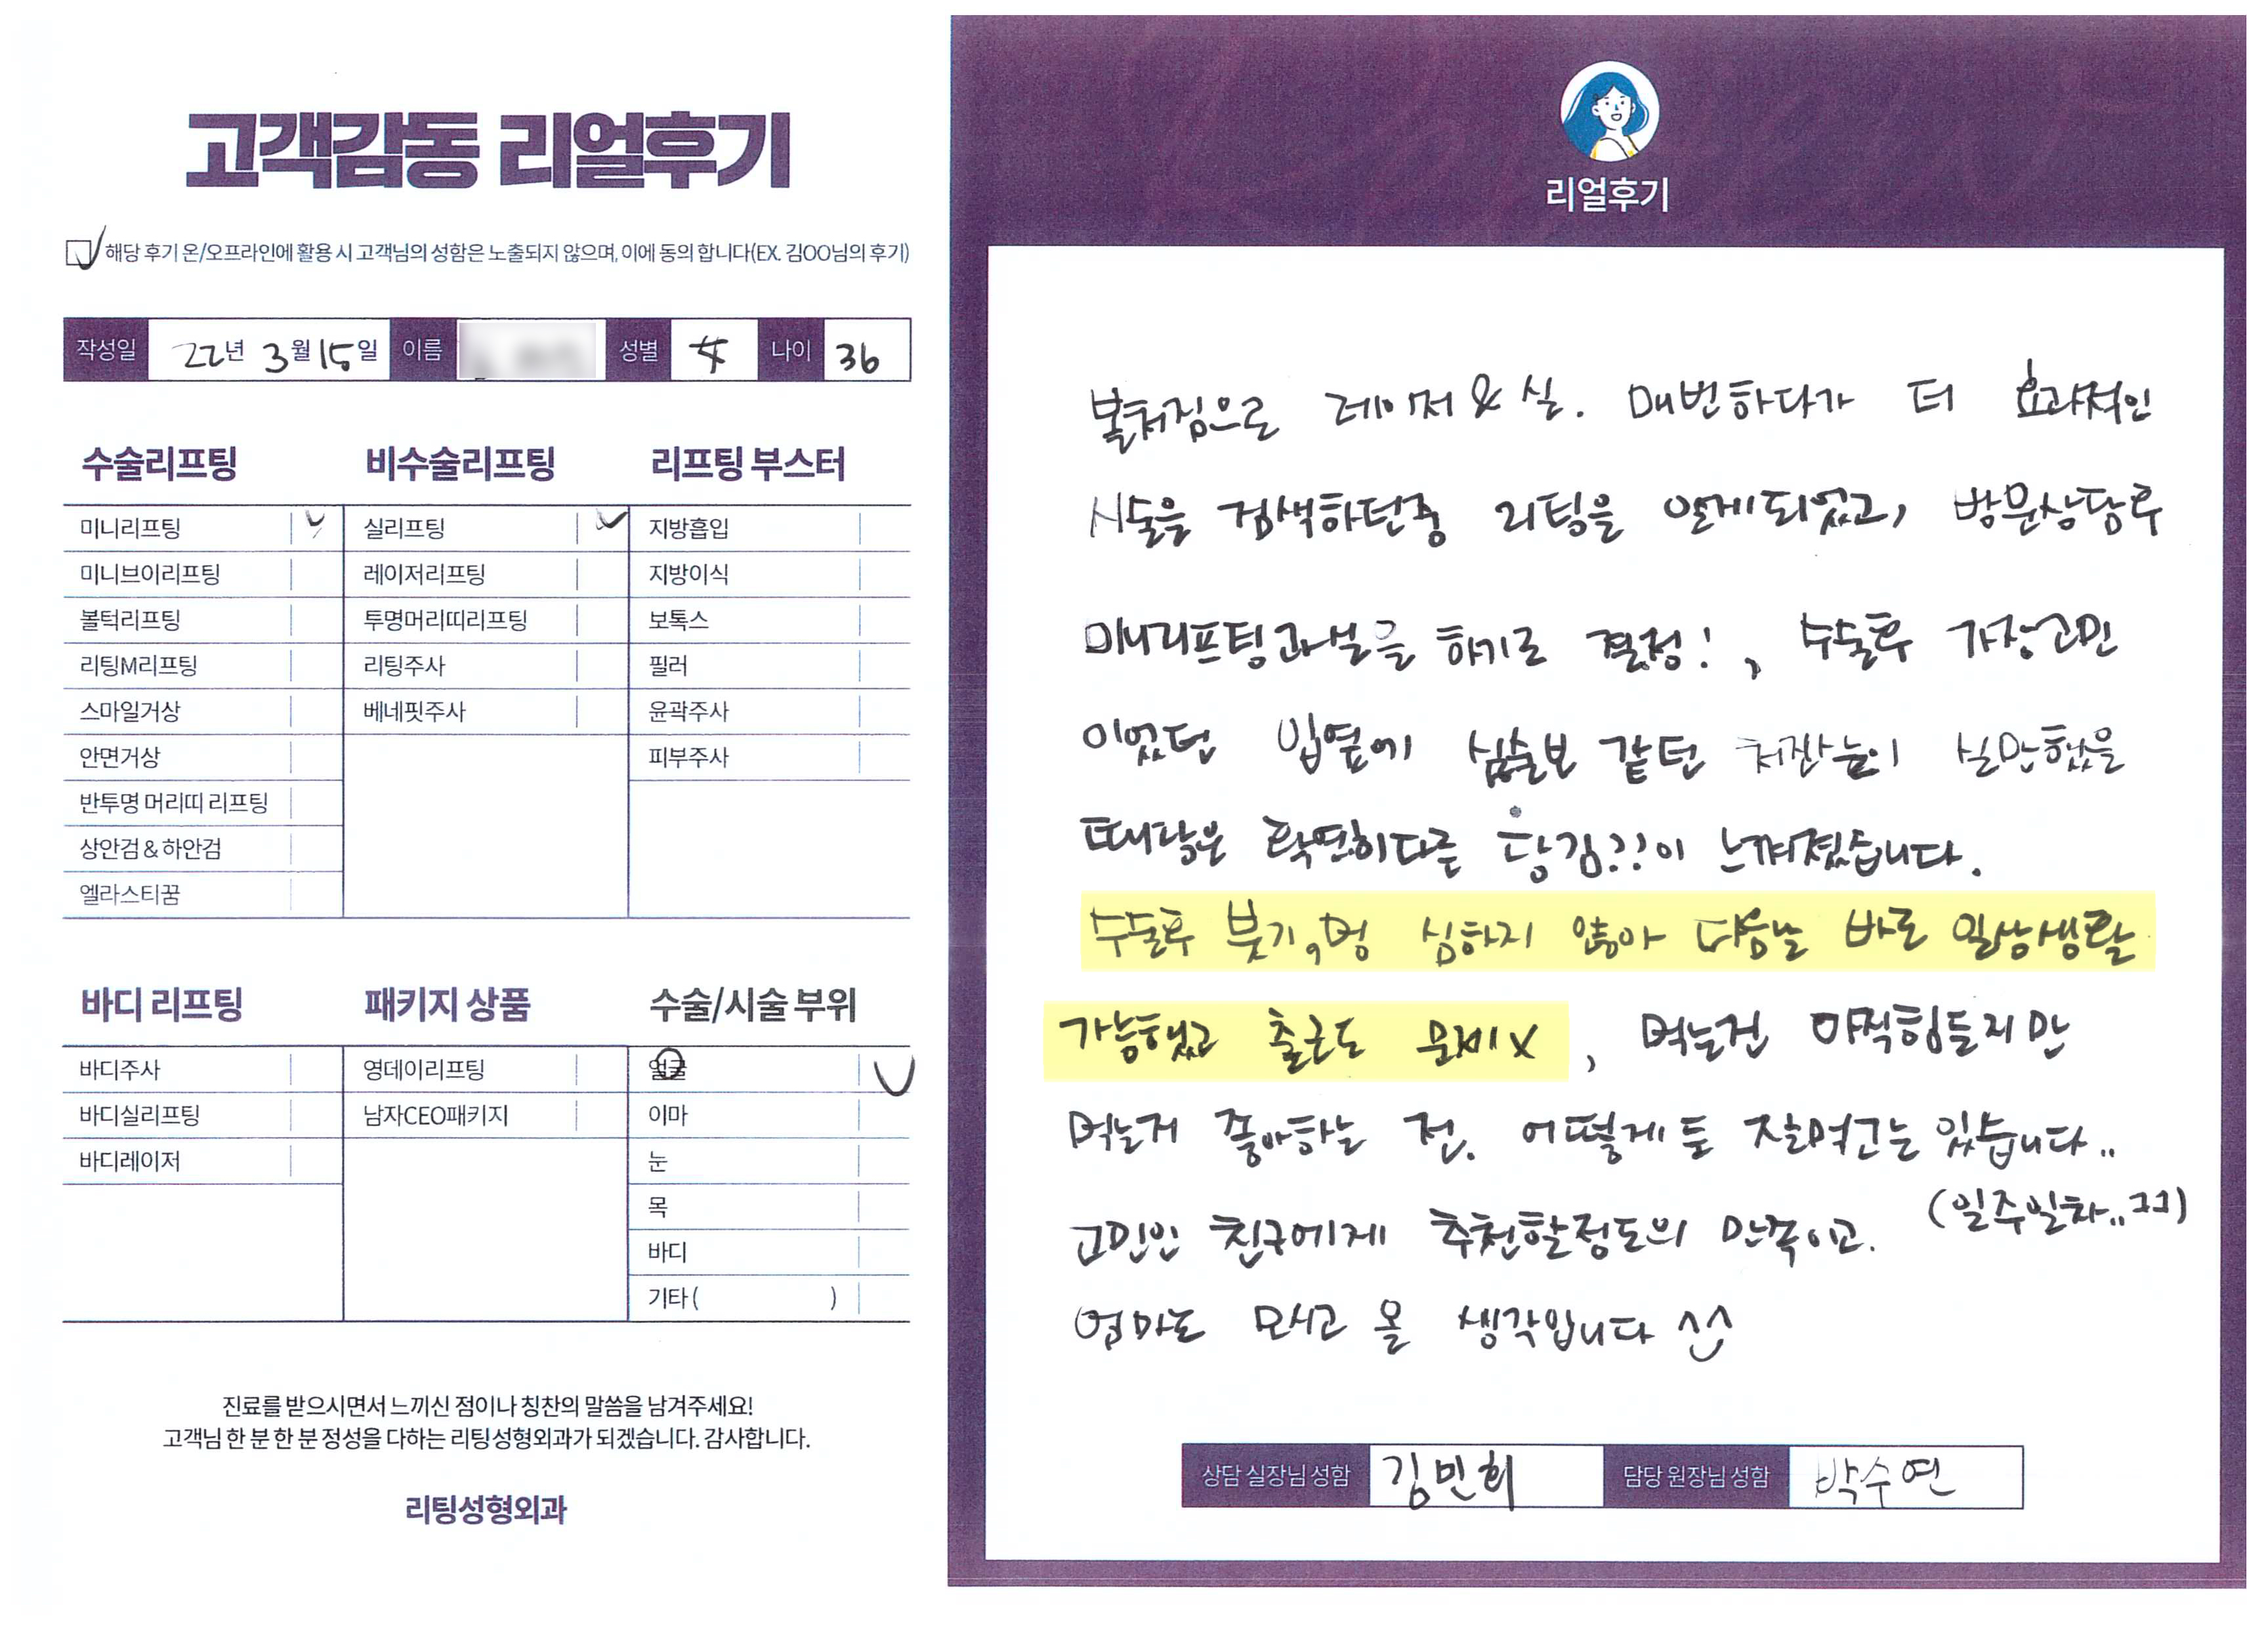 고객감동 리얼후기
해당 후기 온/오프라인에 활용 시 고객님의 성함은 노출되지 않으며, 이에 동의 합니다(EX. 김OO님의 후기)
작성일 22년 3월 15일 이름 성별 여 나이 36
수술리프팅
미니리프팅
미니브이리프팅
볼턱리프팅
리팅M리프팅
스마일거상
안면거상
반투명 머리띠 리프팅
상안검 & 하안검
엘라스티꿈
비수술리프팅
실리프팅
레이저리프팅
투명머리띠리프팅
리팅주사
베네핏주사
리프팅 부스터
지방흡입
지방이식
보톡스
필러
윤곽주사
피부주사
바디 리프팅
바디주사
바디실리프팅
바디레이저
패키지 상품
영데이리프팅
남자CEO패키지
수술/시술 부위
얼굴
이마
눈
목
바디
기타 ( )
진료를 받으시면서 느끼신 점이나 칭찬의 말씀을 남겨주세요!
고객님 한 분 한 분 정성을 다하는 리팅성형외과가 되겠습니다. 감사합니다.
리팅성형외과
리얼후기
볼쳐짐으로 레이저 & 실. 매번하다가 더 효과적인
시술을 검색하던중 리팅을 알게되었고, 방문상담후
미니리프팅과 실을 하기로 결정!, 수술후 가장고민
이었던 입옆에 심술보 같던 처짐 실만했을
때랑은 확연히다른 당김??이 느껴졌습니다.
수술후 붓기,멍 심하지 않아 다음날 바로 일상생활
가능했고 출근도 문제X, 먹는건 아직힘들지만
먹는게 좋아하는 전. 어떻게든 잘먹고는 있습니다..
(일주일차..ㅋㅋ)
고민인 친구에게 추천할정도의 만족이고.
엄마도 모시고 올 생각입니다 ^^
상담 실장님 성함 김민희 담당 원장님 성함 박수연